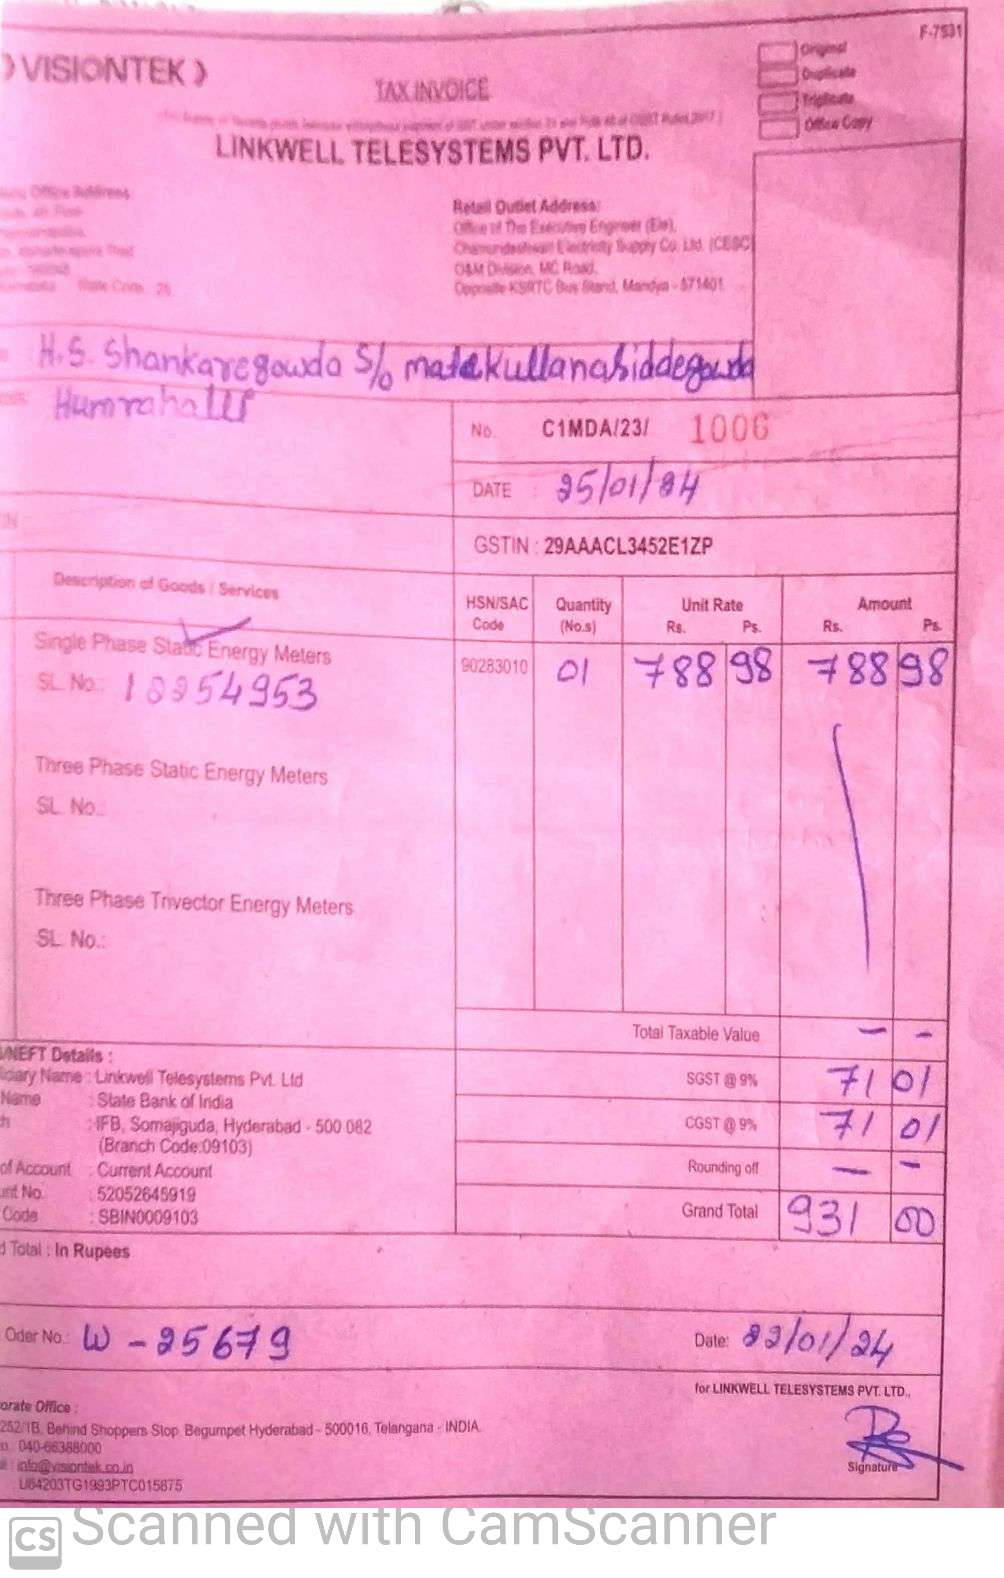 F-7531
VISIONTEK
Original
Duplicate
Triplicate
Office Copy
TAX INVOICE
LINKWELL TELESYSTEMS PVT. LTD.
Office Address
State Code
Retail Outlet Address:
Office of The Executive Engineer (Ele),
Chamundeshwari Electricity Supply Co. Ltd. (CESC
O&M Division, MC Road,
Opposite KSRTC Bus Stand, Mandya - 571401
H.S. Shankaregowda S/o
No. C1MDA/23/ 1006
DATE : 25/01/24
GSTIN : 29AAACL3452E1ZP
Description of Goods / Services
HSN/SAC Code Quantity (No.s) Unit Rate Rs. Ps. Amount Rs. Ps.
Single Phase Static Energy Meters 90283010 01 788 98 788 98
SL. No.: 18954953
Three Phase Static Energy Meters
SL. No.:
Three Phase Trivector Energy Meters
SL. No.:
Total Taxable Value - -
/NEFT Details :
ciary Name : Linkwell Telesystems Pvt. Ltd SGST @ 9% 71 01
Name : State Bank of India
h : IFB, Somajiguda, Hyderabad - 500 082 CGST @ 9% 71 01
(Branch Code:09103)
of Account : Current Account Rounding off - -
unt No. : 52052645919
Code : SBIN0009103 Grand Total 931 00
d Total : In Rupees
Oder No.: W - 25679 Date: 22/01/24
for LINKWELL TELESYSTEMS PVT. LTD.,
orate Office :
252/1B, Behind Shoppers Stop, Begumpet Hyderabad - 500016, Telangana - INDIA.
o. : 040-66388000
il : info@visiontek.co.in
: U64203TG1993PTC015875
Signature
CS Scanned with CamScanner